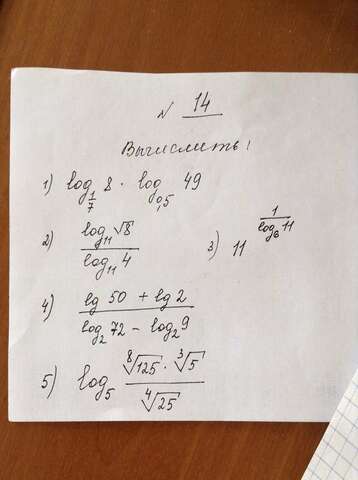 № 14
Вычислить!
1) log_{1/7} 8 · log_{0,5} 49
2) \frac{log_{11} √8}{log_{11} 4}
3) 11^{\frac{1}{log_6 11}}
4) \frac{lg 50 + lg 2}{log_2 72 - log_2 9}
5) log_5 \frac{\sqrt[8]{125} · \sqrt[3]{5}}{\sqrt[4]{25}}